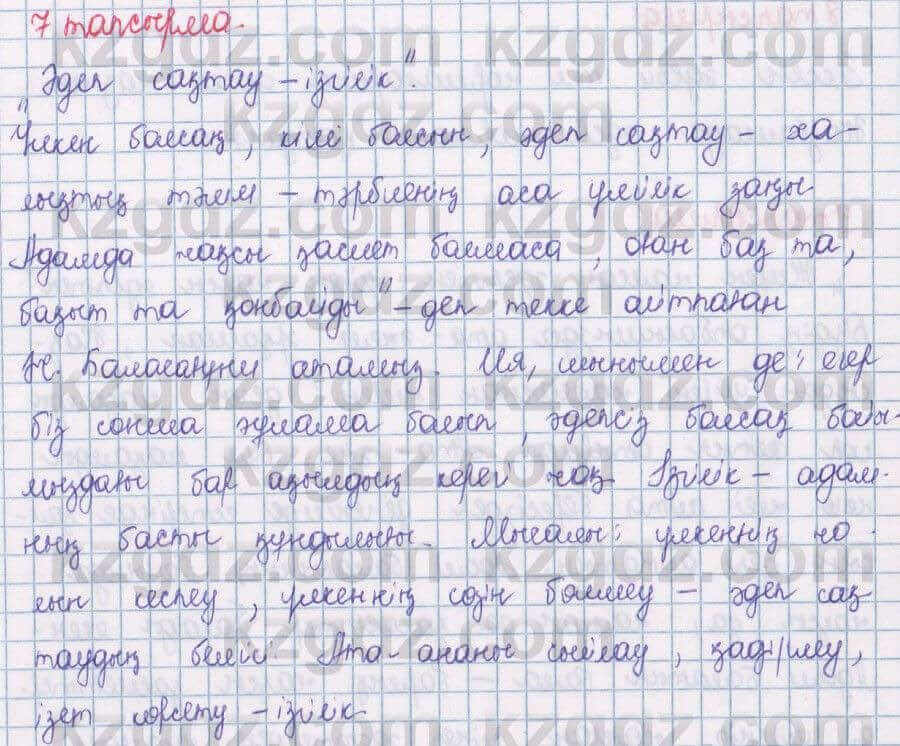 7 тапсырма.
„Әдеп сақтау – ізгілік".
Үлкен болсаң, кіші болсын, әдеп сақтау – ха-
лықтың тәлім – тәрбиенің аса үлгілік заңы
Адамда жақсы қасиет болмаса, оған бақ та,
бақыт та қонбайды" – деп текке айтпаған
Ж. Баласағұни атамыз. Ия, шынымен де; егер
біз сонша ғұлама болып, әдепсіз болсақ бойы-
мыздағы бар ақылдың керегі жоқ. Ізгілік – адам-
ның басты құндылығы. Мысалы: үлкеннің жо
лын кеспеу, үлкеннің сөзін бөлмеу – әдеп сақ
таудың белгісі. Ата-ананы сыйлау, қадірлеу,
ізет көрсету – ізгілік
kzgdz.com